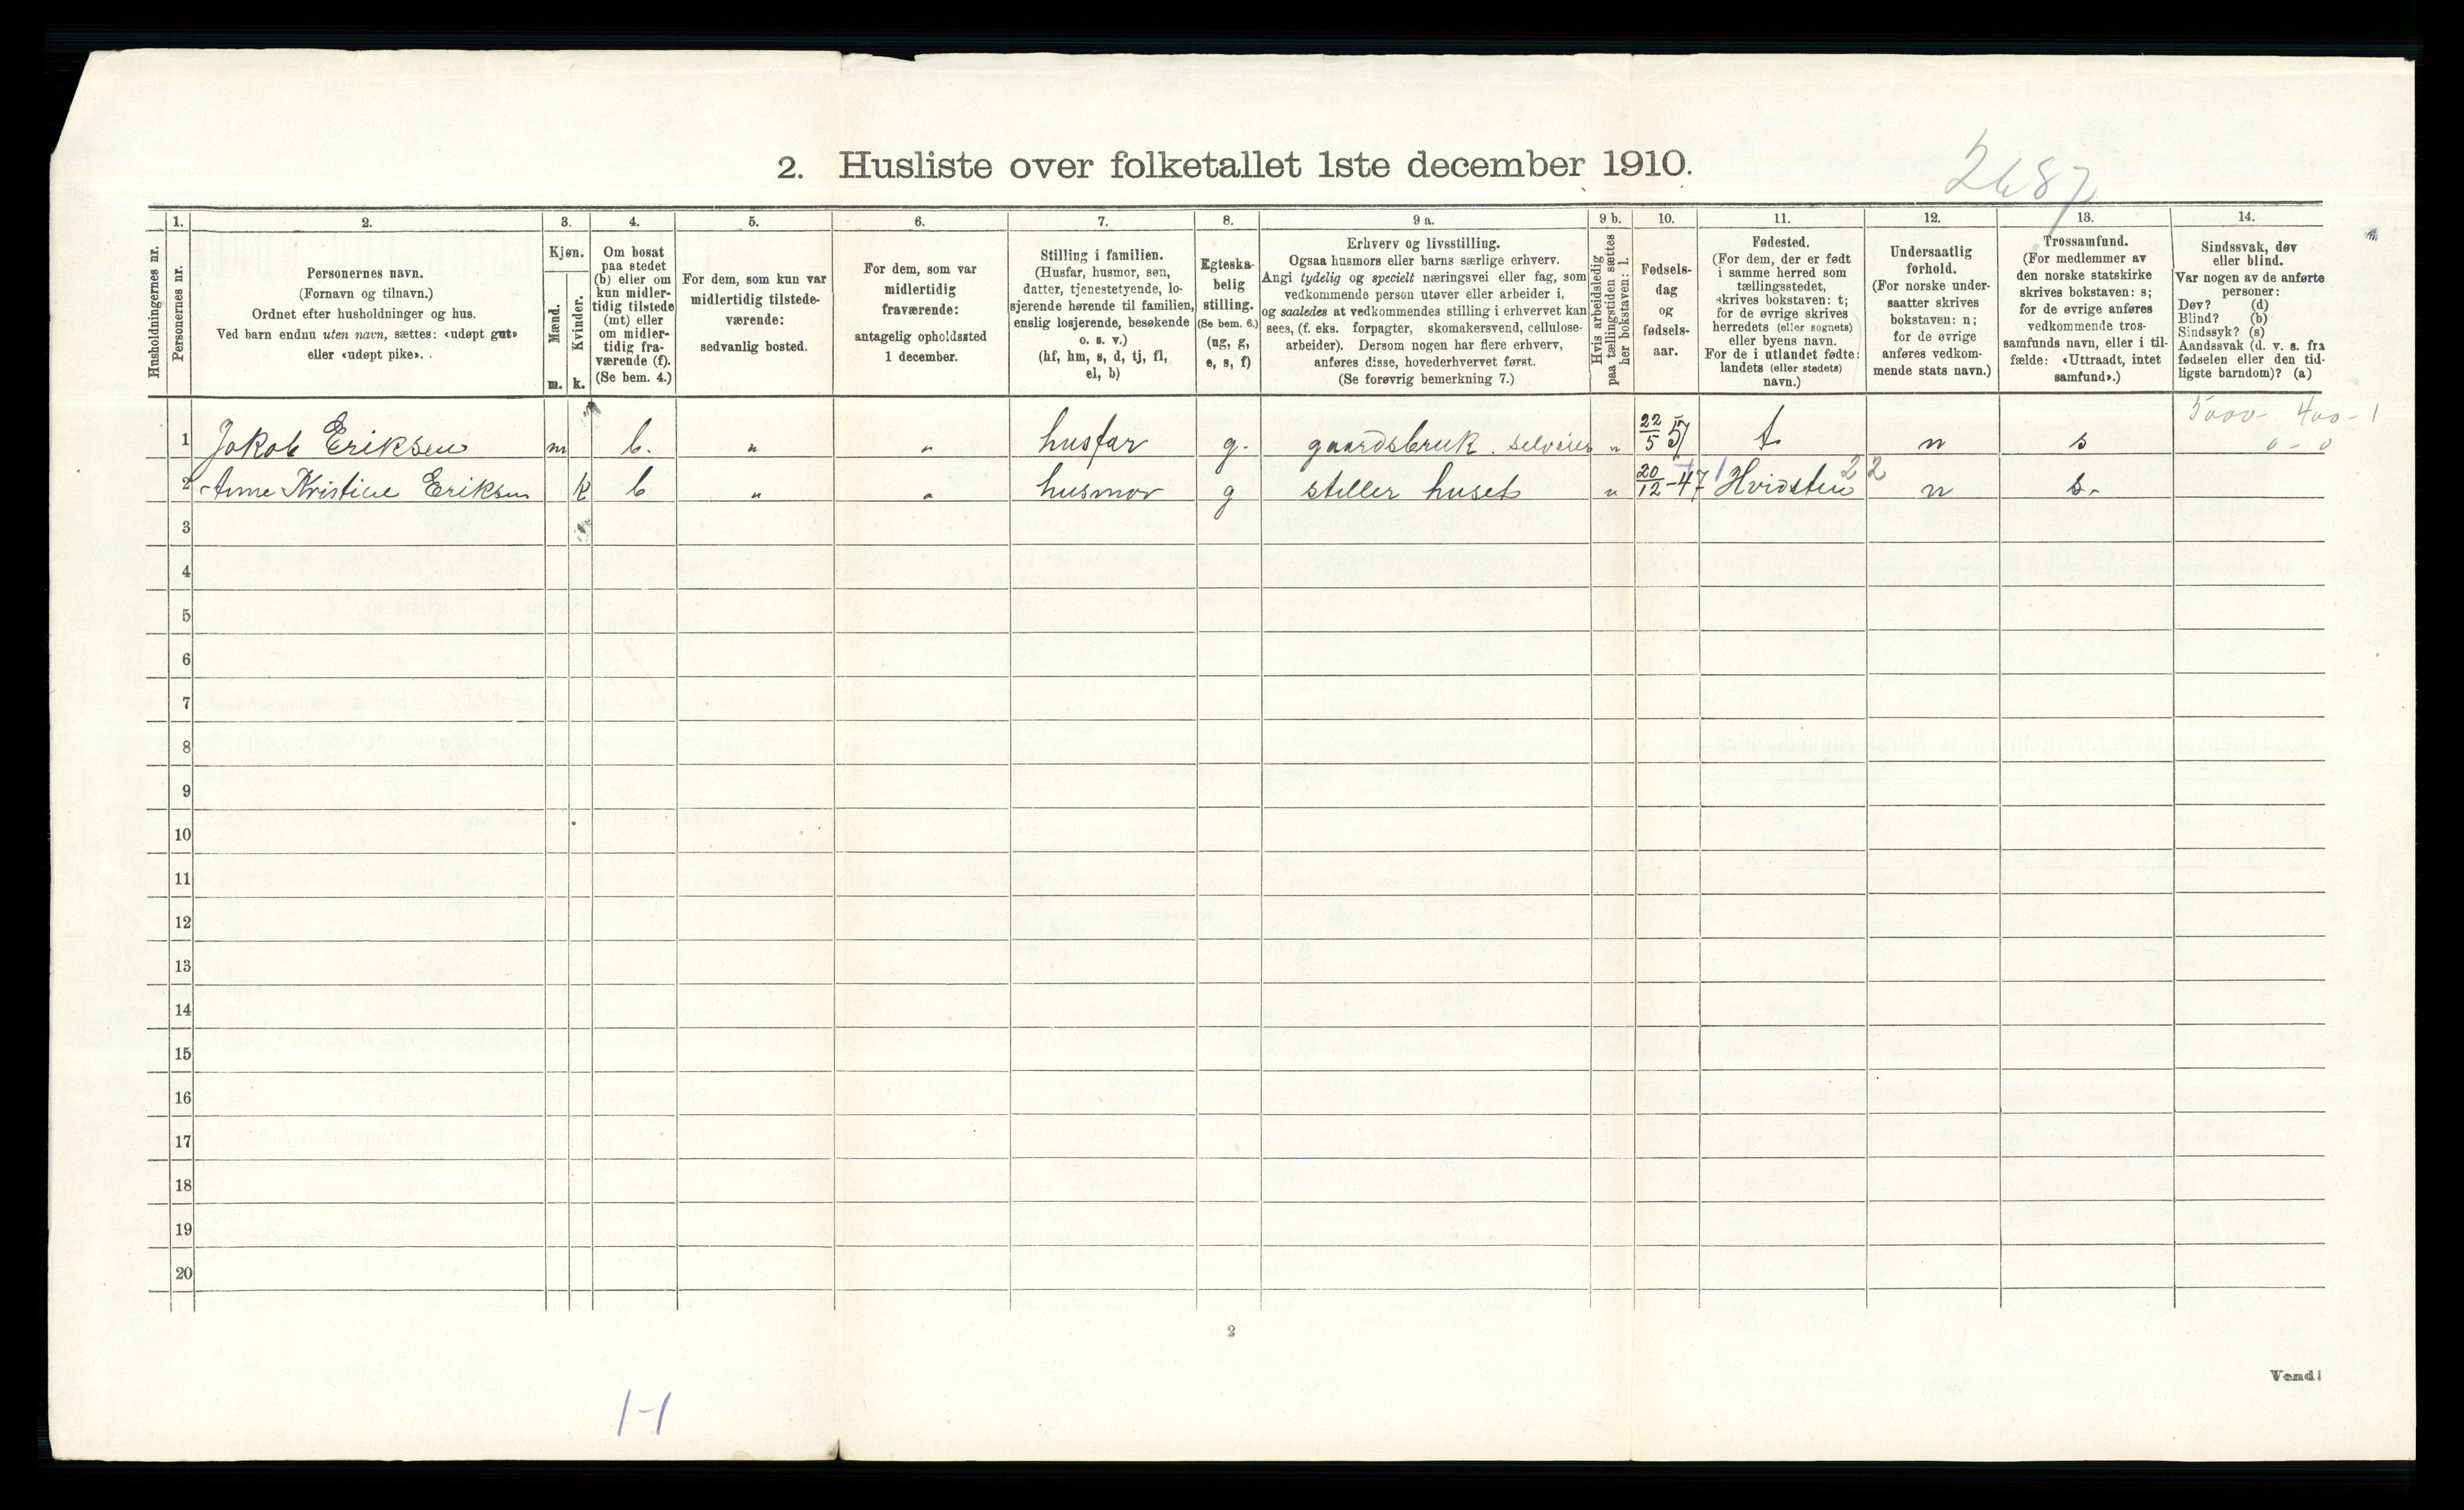 2. Husliste over folketallet 1ste december 1910.
1. 2. 3. 4. 5. 6. 7. 8. 9 a. 9 b. 10. 11. 12. 13. 14.
Husholdningernes nr.
Personernes nr.
Personernes navn.
(Fornavn og tilnavn.)
Ordnet efter husholdninger og hus.
Ved barn endnu uten navn, sættes: «udøpt gut»
eller «udøpt pike».
Kjøn.
Mænd.
Kvinder.
m. k.
Om bosat
paa stedet
(b) eller om
kun midler-
tidig tilstede
(mt) eller
om midler-
tidig fra-
værende (f).
(Se bem. 4.)
For dem, som kun var
midlertidig tilstede-
værende:
sedvanlig bosted.
For dem, som var
midlertidig
fraværende:
antagelig opholdssted
1 december.
Stilling i familien.
(Husfar, husmor, søn,
datter, tjenestetyende, lo-
sjerende hørende til familien,
enslig losjerende, besøkende
o. s. v.)
(hf, hm, s, d, tj, fl,
el, b)
Egteska-
belig
stilling.
(Se bem. 6.)
(ug, g,
e, s, f)
Erhverv og livsstilling.
Ogsaa husmors eller barns særlige erhverv.
Angi tydelig og specielt næringsvei eller fag, som
vedkommende person utøver eller arbeider i,
og saaledes at vedkommendes stilling i erhvervet kan
sees, (f. eks. forpagter, skomakersvend, cellulose-
arbeider). Dersom nogen har flere erhverv,
anføres disse, hovederhvervet først.
(Se forøvrig bemerkning 7.)
Hvis arbeidsledig
paa tællingstiden sættes
her bokstaven: l.
Fødsels-
dag
og
fødsels-
aar.
Fødested.
(For dem, der er født
i samme herred som
tællingsstedet,
skrives bokstaven: t;
for de øvrige skrives
herredets (eller sognets)
eller byens navn.
For de i utlandet fødte:
landets (eller stedets)
navn.)
Undersaatlig
forhold.
(For norske under-
saatter skrives
bokstaven: n;
for de øvrige
anføres vedkom-
mende stats navn.)
Trossamfund.
(For medlemmer av
den norske statskirke
skrives bokstaven: s;
for de øvrige anføres
vedkommende tros-
samfunds navn, eller i til-
fælde: «Uttraadt, intet
samfund».)
Sindssvak, døv
eller blind.
Var nogen av de anførte
personer:
Døv? (d)
Blind? (b)
Sindssyk? (s)
Aandssvak (d. v. s. fra
fødselen eller den tid-
ligste barndom)? (a)
5000- 400-1
1 Jakob Eriksen m b. " " husfar g. gaardsbruk. selveier " 22/5 t. n s 0-0
2 Anne Kristine Eriksen k b " " husmor g steller huset " 20/12-47 Hvidsten 22 n s.
3
4
5
6
7
8
9
10
11
12
13
14
15
16
17
18
19
20
2
Vend!
1-1